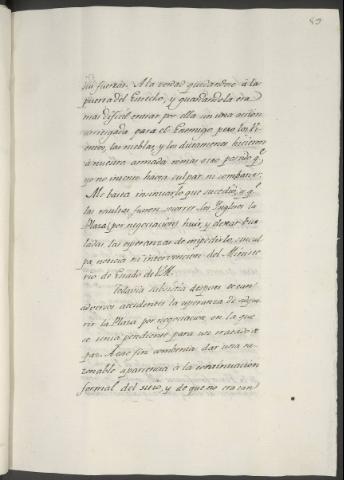 89
sus fuerzas. A la verdad quedandose à la
puerta del Estrecho, y guardandola era
mas dificil entrar por ella sin una accion
arriesgada para el Enemigo pero los Vi-
entos, las nieblas, y los dictamenes hicieron
à nuestra armada tomar otro partido q.e
yo no intento hacer culpar, ni combatir.
Me basta insinuar lo que sucediò, y q.e
las resultas fueron socorrer los Yngleses la
Plaza, por negociaciones huir, y dexar bur-
ladas las esperanzas de impedirlo, sin cul-
pa noticia ni intervencion del Ministe-
rio de Estado de V.M.
Todavia subsistia despues de tan
adversos accidentes la esperanza de adqui-
rir la Plaza por negociacion en la que
se unia pendiente para un tratado de
paz. A este fin combenia dar una ra-
zonable apariencia à la continuacion
formal del sitio, y de que no eran tan